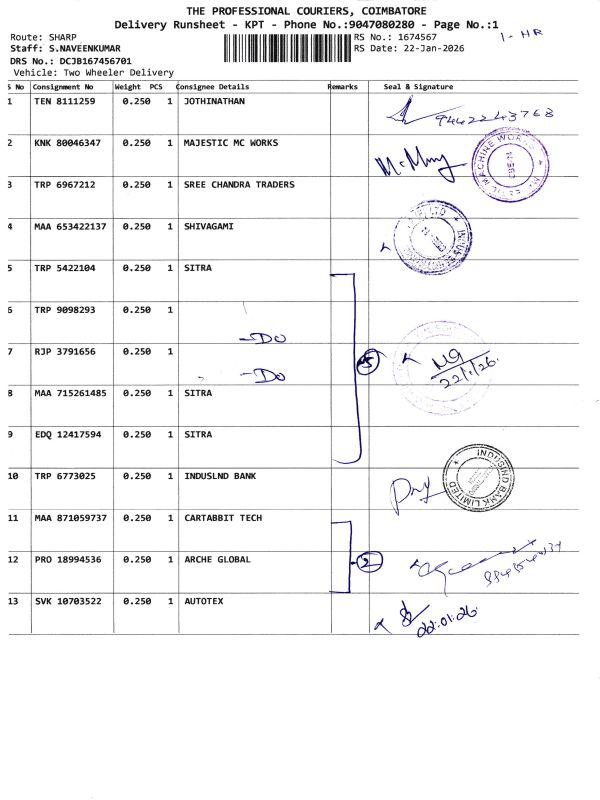 THE PROFESSIONAL COURIERS, COIMBATORE
Delivery Runsheet - KPT - Phone No.:9047080280 - Page No.:1
Route: SHARP RS No.: 1674567 1- HR
Staff: S.NAVEENKUMAR RS Date: 22-Jan-2026
DRS No.: DCJB167456701
Vehicle: Two Wheeler Delivery
S No Consignment No Weight PCS Consignee Details Remarks Seal & Signature
1 TEN 8111259 0.250 1 JOTHINATHAN
2 KNK 80046347 0.250 1 MAJESTIC MC WORKS
3 TRP 6967212 0.250 1 SREE CHANDRA TRADERS
4 MAA 653422137 0.250 1 SHIVAGAMI
5 TRP 5422104 0.250 1 SITRA
6 TRP 9098293 0.250 1 -DO
7 RJP 3791656 0.250 1 -DO
5
22/1/26.
8 MAA 715261485 0.250 1 SITRA
9 EDQ 12417594 0.250 1 SITRA
10 TRP 6773025 0.250 1 INDUSLND BANK
INDUSIND BANK LIMITED
11 MAA 871059737 0.250 1 CARTABBIT TECH
12 PRO 18994536 0.250 1 ARCHE GLOBAL 2
13 SVK 10703522 0.250 1 AUTOTEX
22.01.26.